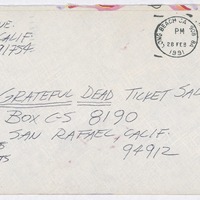 NE.
CALIF.
91754.
LONG BEACH CA 908
PM
20 FEB
1991
GRATEFUL DEAD TICKET SAL
BOX CS 8190
SAN RAFAEL, CALIF.
94912
TS